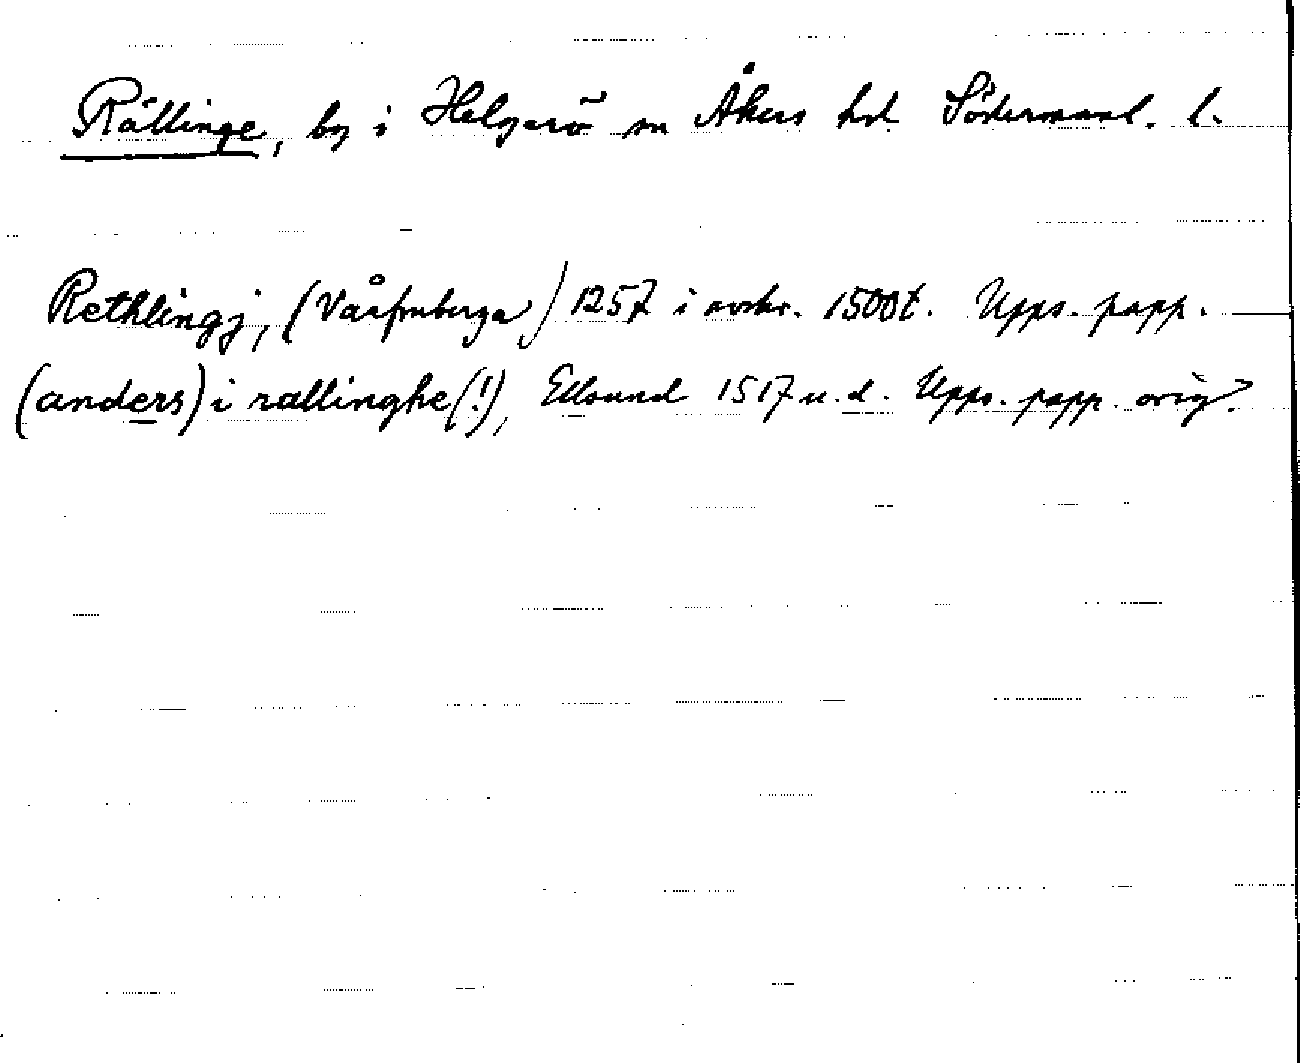 Rällinge, by i Helgarö sn Åkers hd Södermanl. l.
Rethlingj, (Vårfruberga) 1257 i avskr. 1500t. Upps. papp.
(anders) i rallinghe (!), Edsund 1517 u. d. Upps. papp. orig.